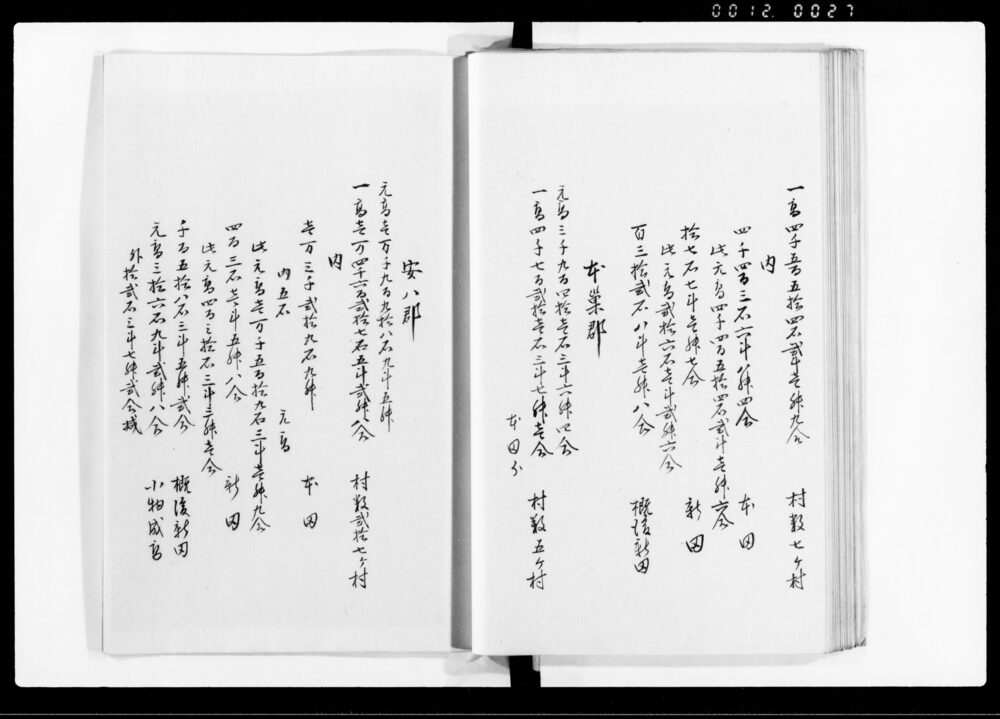 0012 0027
一高四千五百五拾四石弐斗壱升九合 村数七ケ村
内
四千四百三石六斗八升四合 本田
此元高四千四百五拾四石弐斗壱升六合
拾七石七斗壱升七合 新田
此元高弐拾六石壱斗弐升六合
百三拾弐石八斗壱升八合 概後新田
本巣郡
元高三千九百四拾壱石三斗六升四合
一高四千七百弐拾壱石三斗七升壱合 村数五ケ村
本田分
安八郡
元高壱万千九百九拾八石九斗五升
一高壱万四千六百弐拾七石五斗弐升八合 村数弐拾七ケ村
内
壱万三千弐拾九石九升 本田
内五石 元高
此元高壱万千五百拾九石三斗壱升九合
四百三石壱斗五升八合 新田
此元高四百三拾石三斗三升壱合
千百五拾八石三斗五升弐合 概後新田
元高三拾六石九斗弐升八合 小物成高
外拾弐石三斗七升弐合減